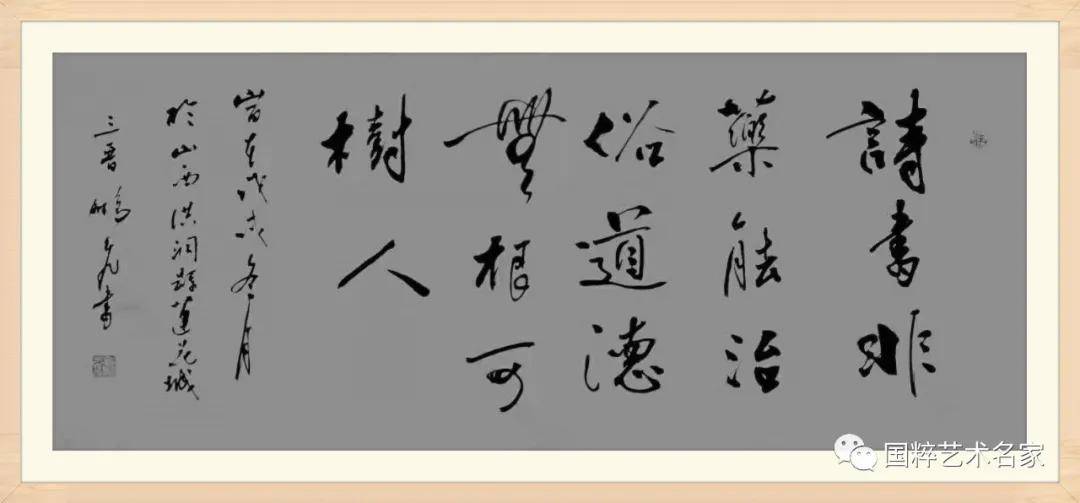 詩書非
藥能治
俗道德
無根可
樹人
歲在戊戌冬月
於山西洪洞縣蓮花城
三晉鵬飛書
国粹艺术名家